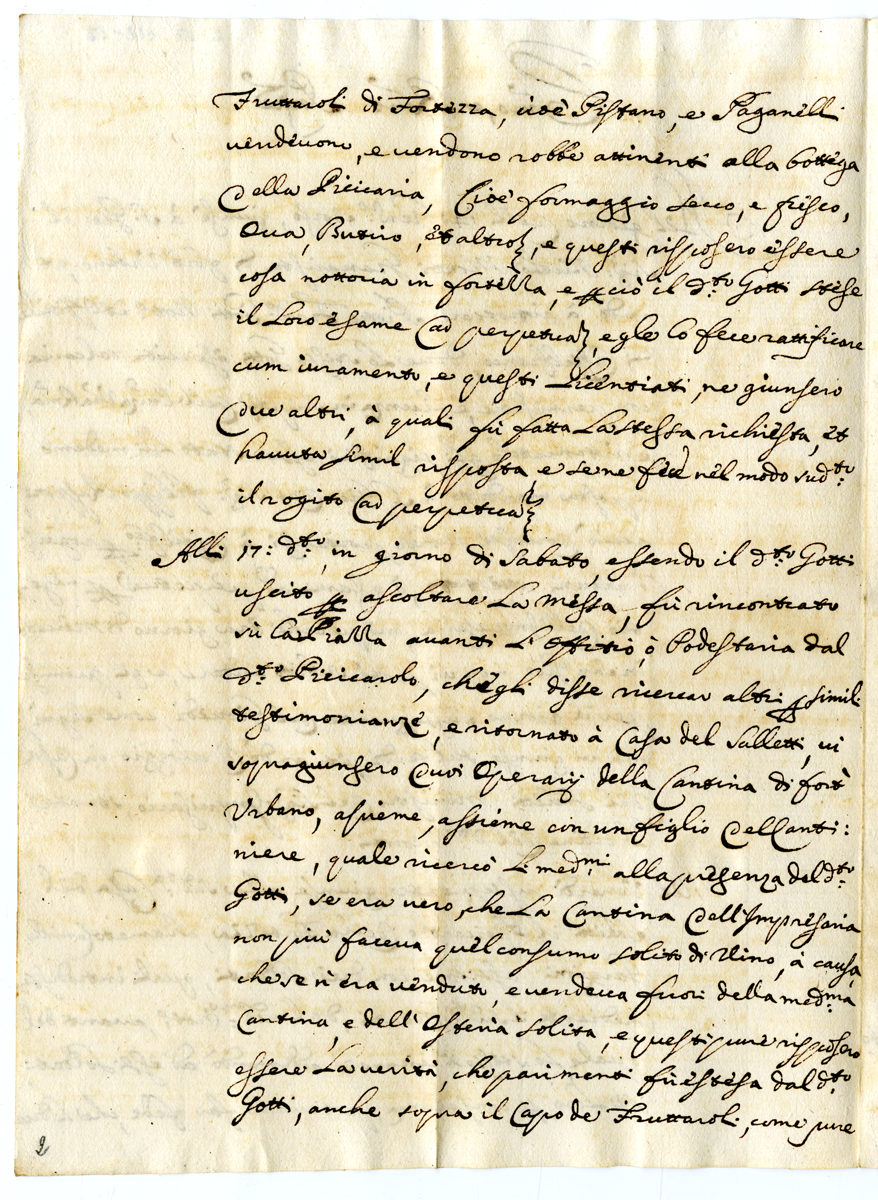 Fruttaroli di Fortezza, cioè Pistano, e Paganelli
vendevono, e vendono robbe attinenti alla bottega
della Picicaria, Cioè formaggio secco, e fresco,
Oua, Butiro, et altro, e questi risposero essere
cosa nottoria in fortezza, e per ciò il d.to Gotti stese
il Loro esame ad perpetua, e gle lo fece rattificare
cum iuramento, e questi Licentiati, ne giunsero
due altri, à quali fù fatta La stessa richiesta, et
hauuta simil risposta e se ne fece nel modo sud.to
il rogito ad perpetua
Alli 17: d.to, in giorno di Sabato, essendo il d.to Gotti
uscito per ascoltare La Messa, fù rincontrato
sù la Piazza auanti L'Offitio, ò Podestaria dal
d.to Picicarolo, che gli disse ricercar altri per simili
testimonianze, e ritornato à Casa del Salletti, ui
sopragiunsero duoi Operarij della Cantina di fort
Urbano, assieme con un figlio del Canti:
niere, quale ricercò Li med.mi alla presenza del d.to
Gotti, se era vero, che La Cantina dell'Impresaria
non più faceva quel consumo solito di Vino, à causa,
che se n'era venduto, e vendeva fuori della med.ma
Cantina, e dell'Osteria solita, e questi pure risposero
essere La verità, che parimenti fù estesa dal d.to
Gotti, anche sopra il Capo de Fruttaroli, come pure
2